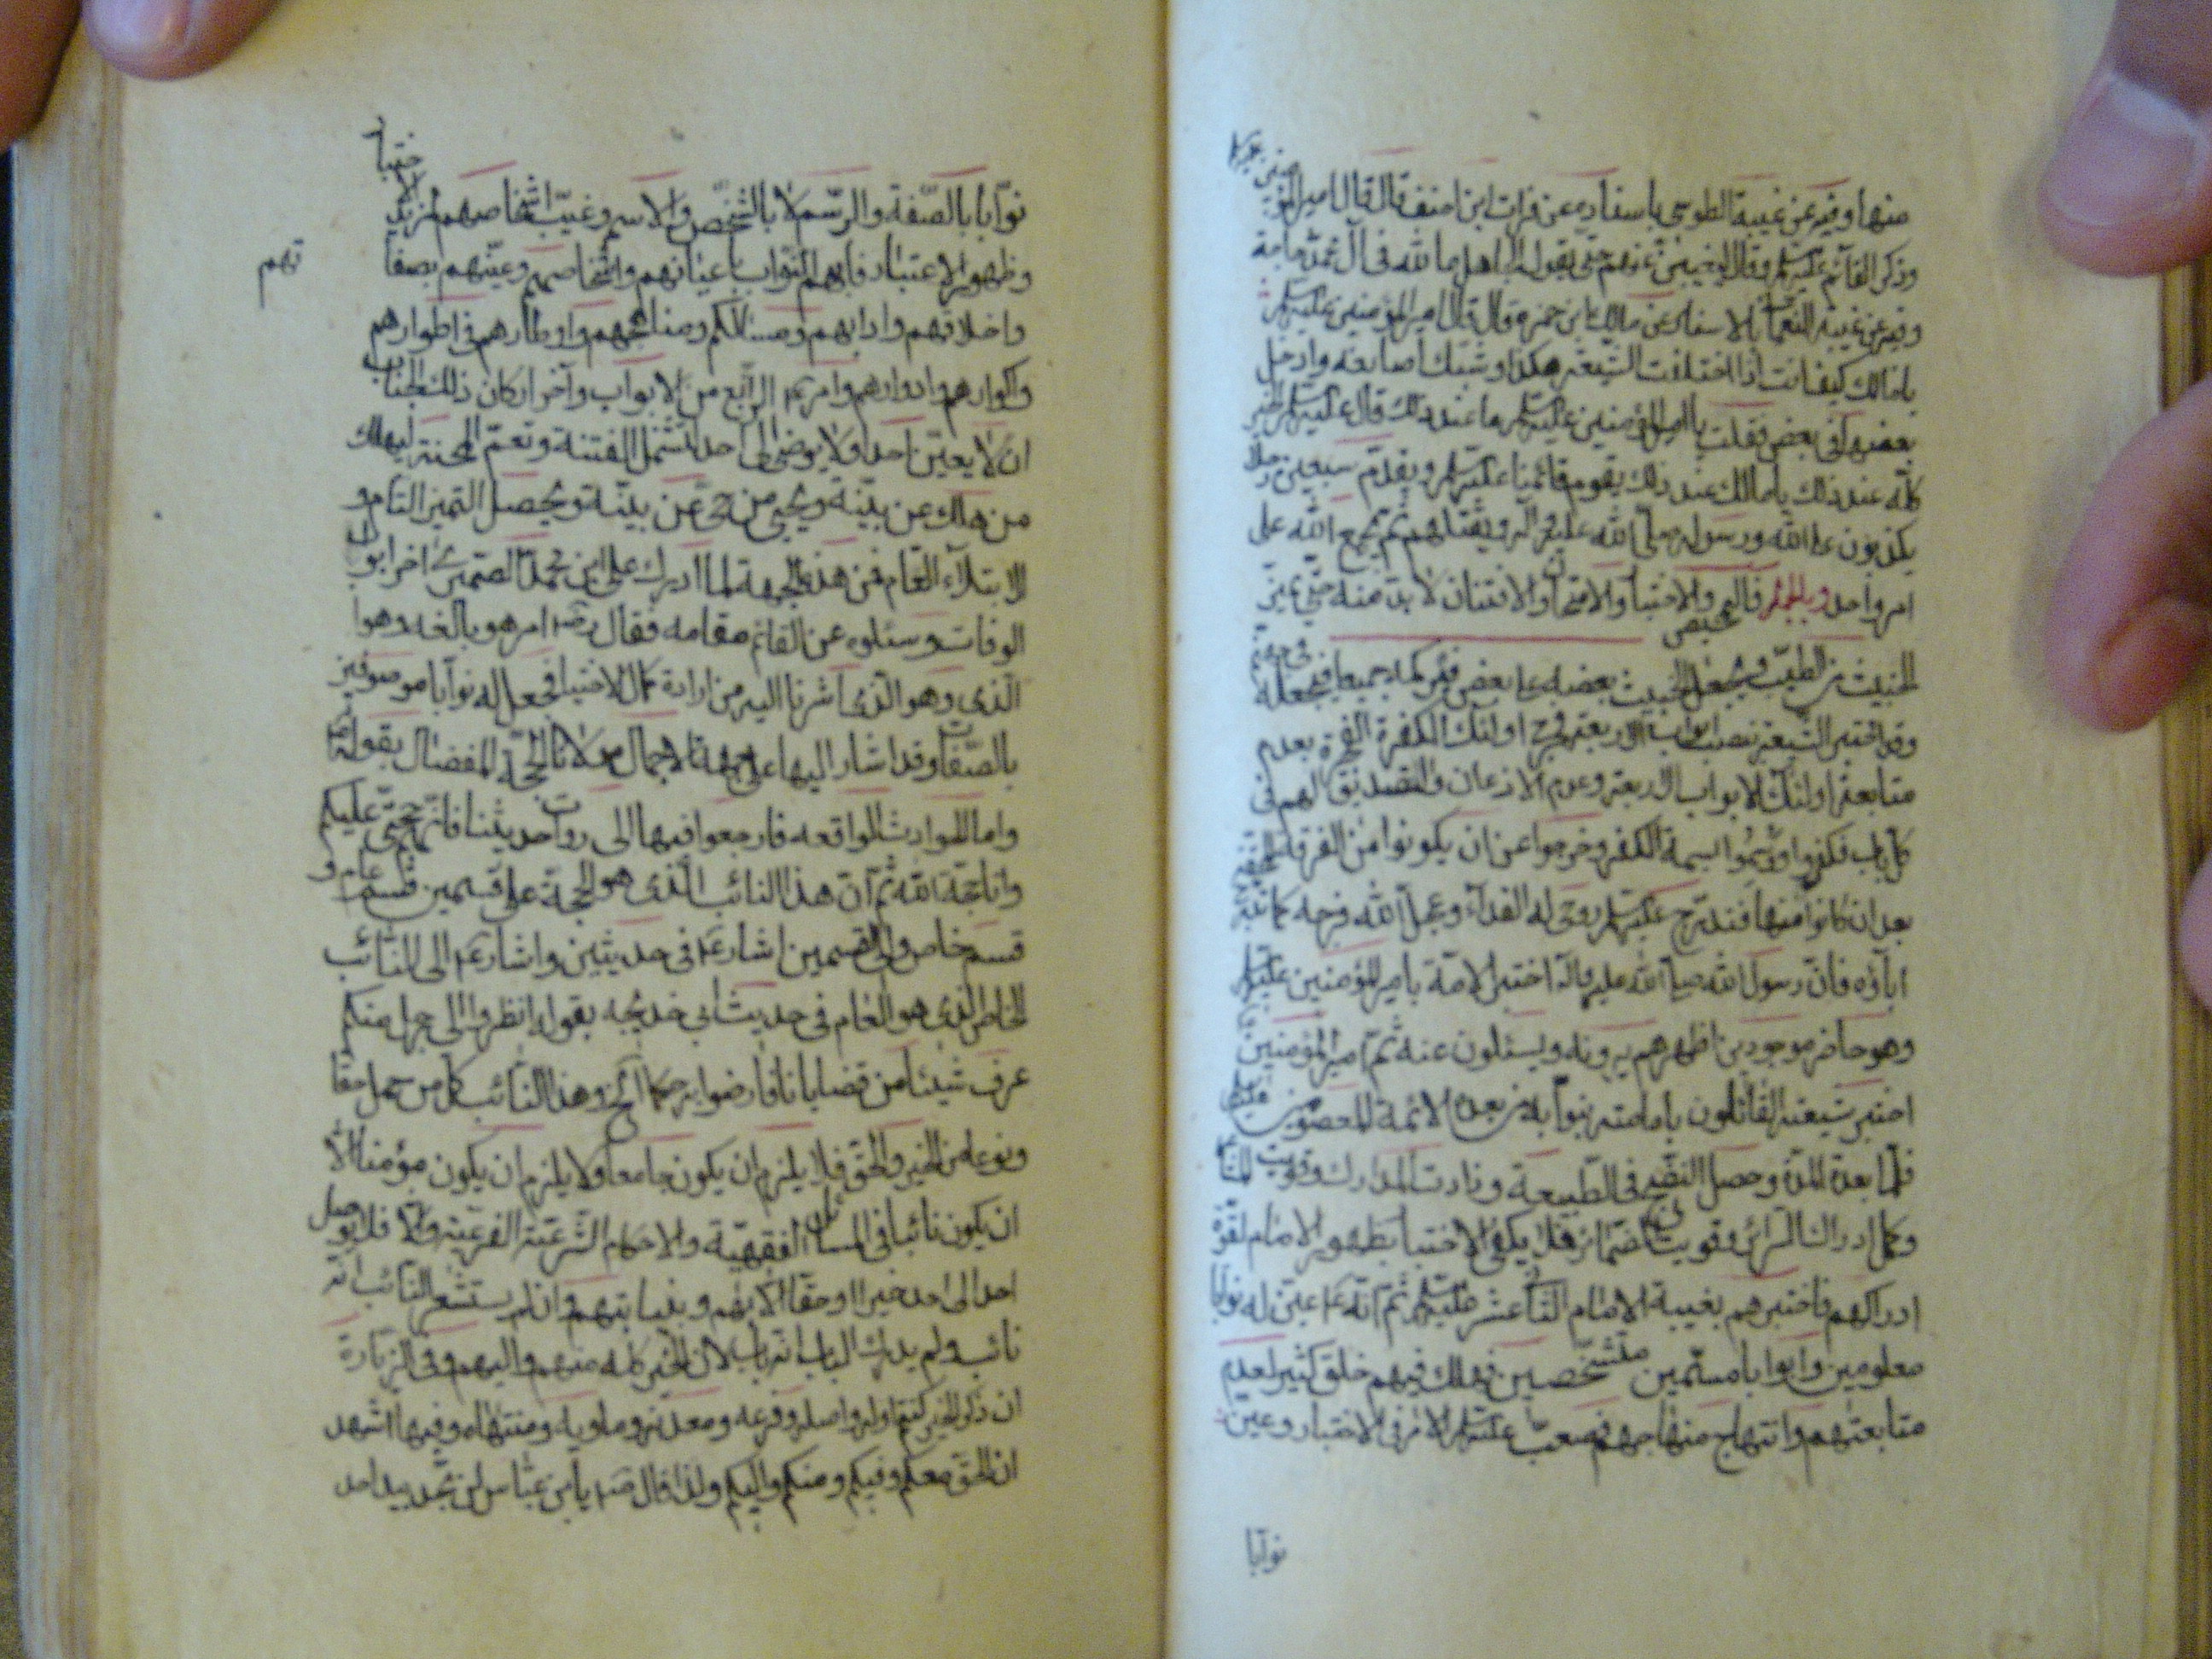 منها وفيه عن غيبة الطوسي باسناده عن فرات ابن احنف قال قال امير المؤمنين عليه السلام
وذكر القائم عليه السلام وقال ليغيبن عنهم حتى يقول الجاهل ما لله في آل محمد حاجة
وفيه عن غيبة النعماني بالاسناد عن مالك ابن ضمره قال قال امير المؤمنين عليه السلام
يا مالك كيف انت اذا اختلفت الشيعة هكذا وشبك اصابعه وادخل
بعضها في بعض فقلت يا امير المؤمنين عليه السلام ما عند ذلك قال عليه السلام الخير
كله عند ذلك يا مالك عند ذلك يقوم قائمنا عليه السلام ويقدم سبعين رجلا
يكذبون على الله ورسوله صلى الله عليه وآله ويقتلهم ثم يجمع الله على
امر واحد وبالجملة فالتمحيص والاختبار والامتحان والافتتان لا بد منه حتى يميز
الخبيث من الطيب ويجعل الخبيث بعضه على بعض فيركمه جميعا فيجعله في جهنم
وقد اختبر الشيعة بنصب ابواب الاربعة فخرج اولئك الكفرة الفجرة بعدم
متابعة اولئك الابواب الاربعة وعدم الاذعان والتصديق لهم في
كل باب فكفروا ووسموا بسمة الكفر وخرجوا عن ان يكونوا من الفرقة المحقة
بعد ان كانوا منها فتدرج عليه السلام روحي له الفداء وعجل الله فرجه كما تدرج
آباؤه فان رسول الله صلى الله عليه وآله اختبر الامة بامير المؤمنين عليه السلام
وهو حاضر موجود بين اظهرهم يرونه ويسئلون عنه ثم امير المؤمنين
اختبر شيعته القائلون بامامته بنوابه من بعده الائمة المعصومين
فلما بعدة المدة وحصل النضج في الطبيعة وزادت المدارك وقويت
وكمل ادراك السرائر وقويت الضمائر فلا يكفي الاختبار بظهور الامام لقوة
ادراكهم فاختبرهم بغيبة الامام الثاني عشر عليه السلام ثم انه ع عين له نوابا
معلومين وابوابا مسمين متشخصين فهلك فيهم خلق كثير لعدم
متابعتهم وانتهاج منهاجهم فصعب عليه السلام الامر في الاختبار وعين
نوابا
نوابا بالصفة والرسم لا بالشخص والاسم وغيب اشخاصهم لمزيد الاختبار
وظهور الاعتبار فابهم النواب باعيانهم واشخاصهم وعينهم بصفاتهم
واخلاقهم وادابهم ومسالكهم ومناهجهم واوطارهم في اطوارهم
واكوارهم وادوارهم وامر الرابع من الابواب وآخر اركان ذلك الجناب
ان لا يعين احدا ولا يوصي الى احد لتشمل الفتنة وتعم المحنة ليهلك
من هلك عن بينة ويحيى من حي عن بينة ويحصل التميز التام و
الابتلاء العام فمن هذه الجهة لما ادرك علي ابن محمد الصميري اخر ابواب
الوفات وسئلوه عن القائم مقامه فقال رضه امر هو بالغه وهوا
الذي وهو الذي اشرنا اليه من ارادة كمال الاختبار فجعل له نوابا موصوفين
بالصفات وقد اشار اليها على جهة الاجمال مولانا الحجة المفضال بقوله
واما الحوادث الواقعه فارجعوا فيها الى روات حديثنا فانهم حجتي عليكم
وانا حجة الله ثم ان هذا النائب الذي هو الحجة على قسمين قسم عام و
قسم خاص والى القسمين اشار ع في حديثين واشار ع الى النائب
الخاص الذي هو العام في حديث ابي خديجه بقوله انظروا الى رجل منكم
عرف شيئا من قضايانا فارضوا به حكما الخ وهذا النائب كل من حمل حقا
ونوعا من الخير والحق فلا يلزم ان يكون جامعا ولا يلزم ان يكون مؤمنا الا
ان يكون نائبا في المسائل الفقهية والاحكام الشرعية الفرعية والا فلا يوصل
احد الى احد خيرا او حقا الا بهم وبنيابتهم وان لم يستشعر النائب انه
نائب ولم يدرك الباب انه باب لان الخير كله منهم واليهم وفي الزيارة
ان ذكر الخير كنتم اوله واصله وفرعه ومعدنه وماويه ومنتهاه وفيها اشهد
ان الحق معكم وفيكم ومنكم واليكم ولذا قال يا بن عباس لن تجد بيد احد